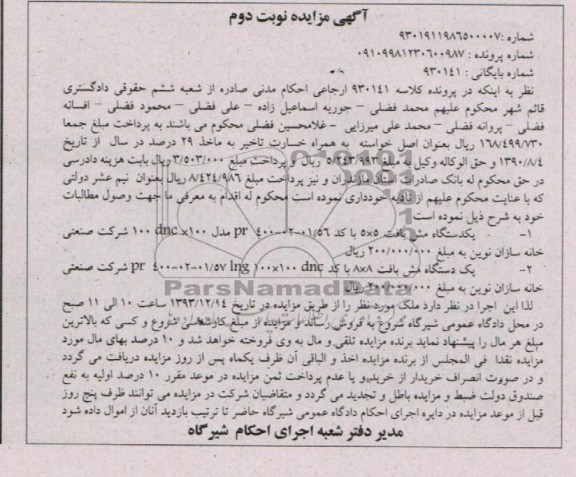 آگهی مزایده نوبت دوم
شماره :۹۳۰۱۹۱۱۹۸۶۵۰۰۰۰۷
شماره پرونده : ۰۹۱۰۹۹۸۱۲۳۰۶۰۰۹۸۷
شماره بایگانی : ۹۳۰۱۴۱
نظر به اینکه در پرونده کلاسه ۹۳۰۱۴۱ ارجاعی احکام مدنی صادره از شعبه ششم حقوقی دادگستری
قائم شهر محکوم علیهم محمد فضلی – جوریه اسماعیل زاده – علی فضلی – محمود فضلی – افسانه
فضلی – پروانه فضلی – محمد علی میرزایی – غلامحسین فضلی محکوم می باشند به پرداخت مبلغ جمعا
۱۶۸/۴۹۹/۷۳۰ ریال بعنوان اصل خواسته به همراه خسارت تاخیر به ماخذ ۲۹ درصد در سال از تاریخ
۱۳۹۰/۸/۴ و حق الوکاله وکیل و مبلغ ۵/۲۴۳/۹۹۳ ریال و پرداخت مبلغ ۳/۵۰۳/۰۰۰ ریال بابت هزینه دادرسی
در حق محکوم له بانک صادرات استان مازندران و نیز پرداخت مبلغ ۸/۴۲۴/۹۸۶ ریال بعنوان نیم عشر دولتی
که با عنایت محکوم علیهم از تادیه خودداری نموده است محکوم له اقدام به معرفی ما جهت وصول مطالبات
خود به شرح ذیل نموده است
۱- یکدستگاه مش بافت ۵x۵ با کد ۰۱/۵۶-۰۲-۴۰۰ pr مدل ۱۰۰x ۱۰۰ dnc شرکت صنعتی
خانه سازان نوین به مبلغ ۲۰۰/۰۰۰/۰۰۰ ریال
۲- یک دستگاه مش بافت ۸x۸ با کد pr ۴۰۰-۰۲-۰۱/۵۷ lng ۱۰۰x۱۰۰ dnc شرکت صنعتی
خانه سازان نوین به مبلغ ۲۰۰/۰۰۰/۰۰۰ ریال
لذا این اجرا در نظر دارد ملک مورد نظر را از طریق مزایده در تاریخ ۱۳۹۳/۱۲/۱۴ ساعت ۱۰ الی ۱۱ صبح
در محل دادگاه عمومی شیرگاه شروع به فروش رساند و مزایده از مبلغ کارشناسی شروع و کسی که بالاترین
مبلغ هر مال را پیشنهاد نماید برنده مزایده تلقی و مال به وی فروخته خواهد شد و ۱۰ درصد بهای مال مورد
مزایده نقدا فی المجلس از برنده مزایده اخذ و الباقی آن ظرف یکماه پس از روز مزایده دریافت می گردد
و در صورت انصراف خریدار از خرید و یا عدم پرداخت ثمن مزایده در موعد مقرر ۱۰ درصد اولیه به نفع
صندوق دولت ضبط و مزایده باطل و تجدید می گردد و متقاضیان شرکت در مزایده می توانند ظرف پنج روز
قبل از موعد مزایده در دایره اجرای احکام دادگاه عمومی شیرگاه حاضر تا ترتیب بازدید آنان از اموال داده شود
مدیر دفتر شعبه اجرای احکام شیرگاه
ParsNamadData